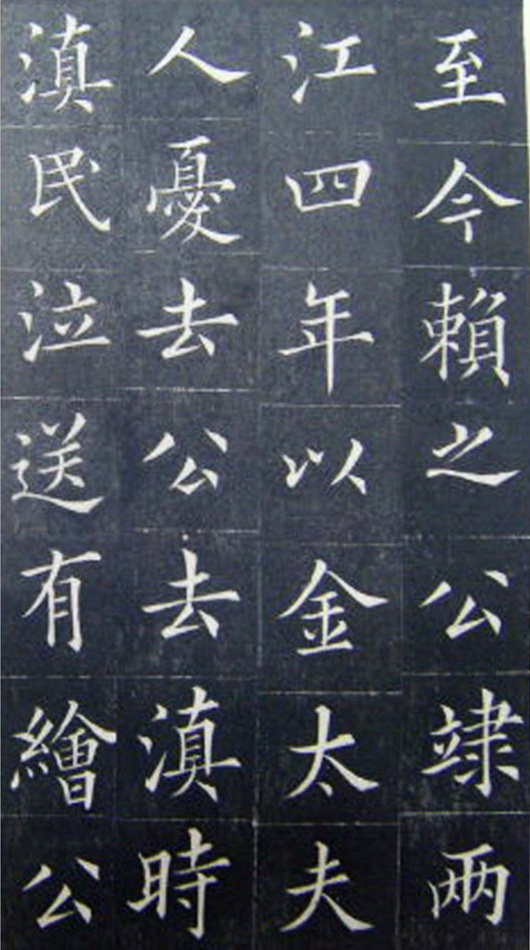 至今賴之公隷两
江四年以金太夫
人憂去公去滇時
滇民泣送有繪公